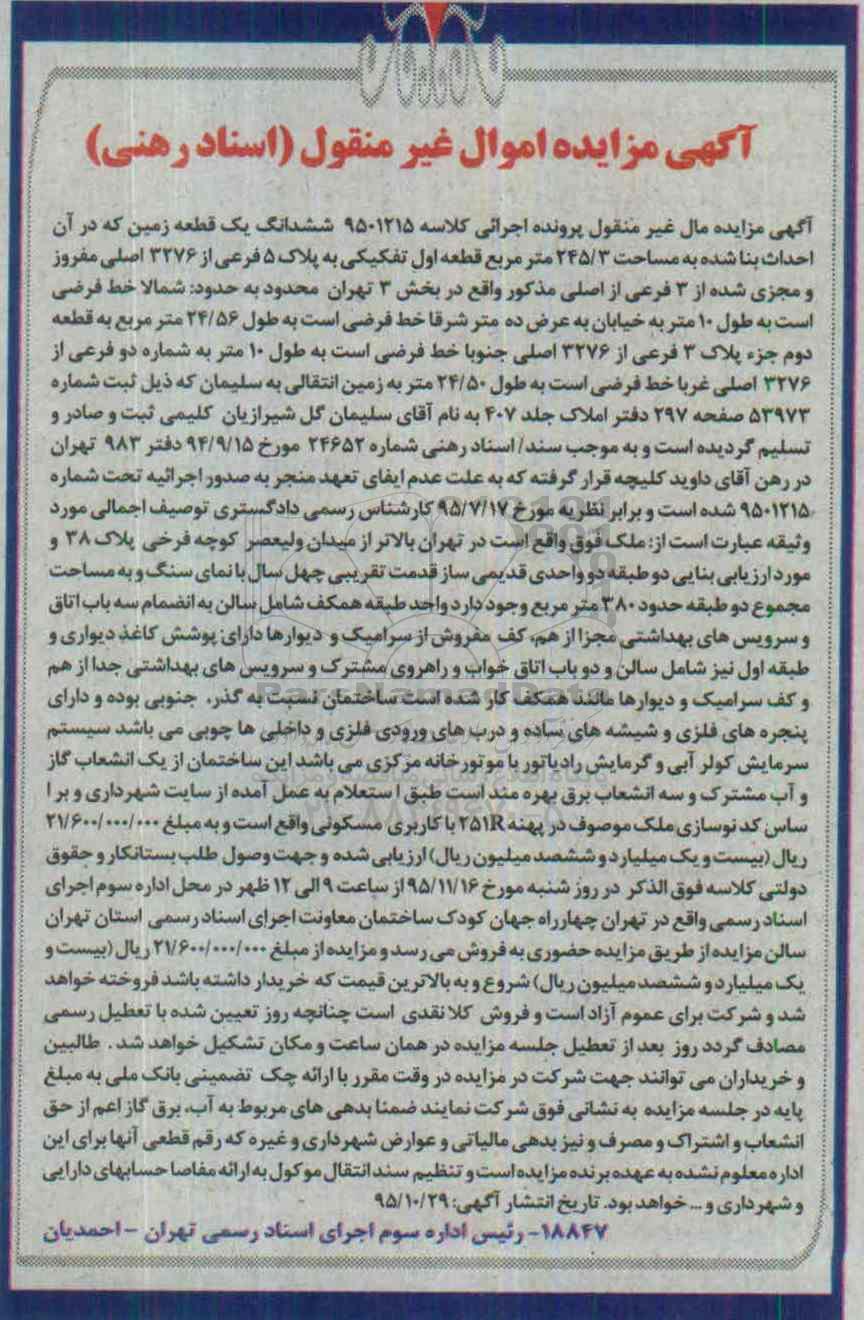 آگهی مزایده اموال غیر منقول (اسناد رهنی)
آگهی مزایده مال غیر منقول پرونده اجرائی کلاسه ۹۵۰۱۲۱۵ ششدانگ یک قطعه زمین که در آن
احداث بنا شده به مساحت ۲۴۵/۳ متر مربع قطعه اول تفکیکی به پلاک ۵ فرعی از ۳۲۷۶ اصلی مفروز
و مجزی شده از ۳ فرعی از اصلی مذکور واقع در بخش ۳ تهران محدود به حدود: شمالا خط فرضی
است به طول ۱۰ متر به خیابان به عرض ده متر شرقا خط فرضی است به طول ۲۴/۵۶ متر مربع به قطعه
دوم جزء پلاک ۳ فرعی از ۳۲۷۶ اصلی جنوبا خط فرضی است به طول ۱۰ متر به شماره دو فرعی از
۳۲۷۶ اصلی غربا خط فرضی است به طول ۲۴/۵۰ متر به زمین انتقالی به سلیمان که ذیل ثبت شماره
۵۳۹۷۳ صفحه ۲۹۷ دفتر املاک جلد ۴۰۷ به نام آقای سلیمان گل شیرازیان کلیمی ثبت و صادر و
تسلیم گردیده است و به موجب سند/ اسناد رهنی شماره ۲۴۶۵۲ مورخ ۹۴/۹/۱۵ دفتر ۹۸۳ تهران
در رهن آقای داوید کلیچه قرار گرفته که به علت عدم ایفای تعهد منجر به صدور اجرائیه تحت شماره
۹۵۰۱۲۱۵ شده است و برابر نظریه مورخ ۹۵/۷/۱۷ کارشناس رسمی دادگستری توصیف اجمالی مورد
وثیقه عبارت است از: ملک فوق واقع است در تهران بالاتر از میدان ولیعصر کوچه فرخی پلاک ۳۸ و
مورد ارزیابی بنایی دو طبقه دو واحدی قدیمی ساز قدمت تقریبی چهل سال با نمای سنگ و به مساحت
مجموع دو طبقه حدود ۳۸۰ متر مربع وجود دارد واحد طبقه همکف شامل سالن به انضمام سه باب اتاق
و سرویس های بهداشتی مجزا از هم، کف مفروش از سرامیک و دیوارها دارای پوشش کاغذ دیواری و
طبقه اول نیز شامل سالن و دو باب اتاق خواب و راهروی مشترک و سرویس های بهداشتی جدا از هم
و کف سرامیک و دیوارها مانند همکف کار شده است ساختمان نسبت به گذر، جنوبی بوده و دارای
پنجره های فلزی و شیشه های ساده و درب های ورودی فلزی و داخلی ها چوبی می باشد سیستم
سرمایش کولر آبی و گرمایش رادیاتور با موتورخانه مرکزی می باشد این ساختمان از یک انشعاب گاز
و آب مشترک و سه انشعاب برق بهره مند است طبق استعلام به عمل آمده از سایت شهرداری و بر ا
ساس کد نوسازی ملک موصوف در پهنه R۲۵۱ با کاربری مسکونی واقع است و به مبلغ ۲۱/۶۰۰/۰۰۰/۰۰۰
ریال (بیست و یک میلیارد و ششصد میلیون ریال) ارزیابی شده و جهت وصول طلب بستانکار و حقوق
دولتی کلاسه فوق الذکر در روز شنبه مورخ ۹۵/۱۱/۱۶ از ساعت ۹ الی ۱۲ ظهر در محل اداره سوم اجرای
اسناد رسمی واقع در تهران چهارراه جهان کودک ساختمان معاونت اجرای اسناد رسمی استان تهران
سالن مزایده از طریق مزایده حضوری به فروش می رسد و مزایده از مبلغ ۲۱/۶۰۰/۰۰۰/۰۰۰ ریال (بیست و
یک میلیارد و ششصد میلیون ریال) شروع و به بالاترین قیمت که خریدار داشته باشد فروخته خواهد
شد و شرکت برای عموم آزاد است و فروش کلا نقدی است چنانچه روز تعیین شده با تعطیل رسمی
مصادف گردد روز بعد از تعطیل جلسه مزایده در همان ساعت و مکان تشکیل خواهد شد. طالبین
و خریداران می توانند جهت شرکت در مزایده در وقت مقرر با ارائه چک تضمینی بانک ملی به مبلغ
پایه در جلسه مزایده به نشانی فوق شرکت نمایند ضمنا بدهی های مربوط به آب، برق گاز اعم از حق
انشعاب و اشتراک و مصرف و نیز بدهی مالیاتی و عوارض شهرداری و غیره که رقم قطعی آنها برای این
اداره معلوم نشده به عهده برنده مزایده است و تنظیم سند انتقال موکول به ارائه مفاصا حسابهای دارایی
و شهرداری و ... خواهد بود. تاریخ انتشار آگهی: ۹۵/۱۰/۲۹
۱۸۸۴۷- رئیس اداره سوم اجرای اسناد رسمی تهران - احمدیان